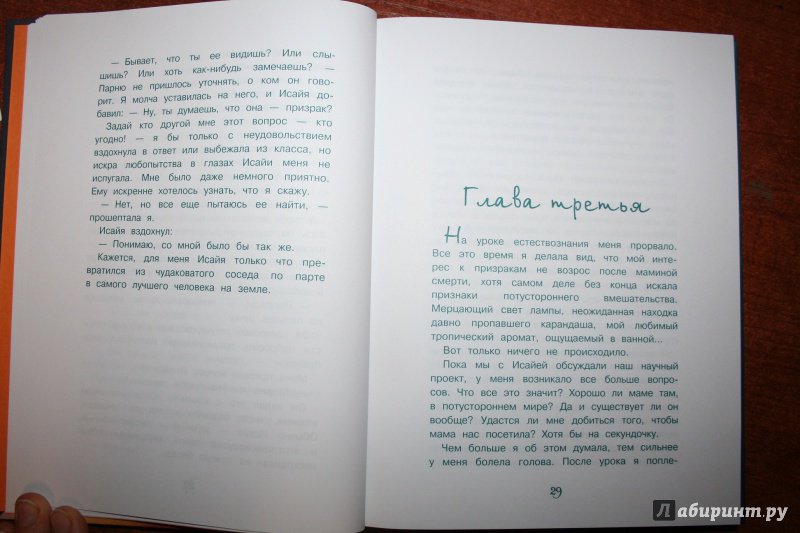 — Бывает, что ты ее видишь? Или слы-
шишь? Или хоть как-нибудь замечаешь? —
Парню не пришлось уточнять, о ком он гово-
рит. Я молча уставилась на него, и Исайя до-
бавил: — Ну, ты думаешь, что она — призрак?
Задай кто другой мне этот вопрос — кто
угодно! — я бы только с неудовольствием
вздохнула в ответ или выбежала из класса, но
искра любопытства в глазах Исайи меня не
испугала. Мне было даже немного приятно.
Ему искренне хотелось узнать, что я скажу.
— Нет, но все еще пытаюсь ее найти, —
прошептала я.
Исайя вздохнул:
— Понимаю, со мной было бы так же.
Кажется, для меня Исайя только что пре-
вратился из чудаковатого соседа по парте
в самого лучшего человека на земле.
Глава третья
На уроке естествознания меня прорвало.
Все это время я делала вид, что мой инте-
рес к призракам не возрос после маминой
смерти, хотя самом деле без конца искала
признаки потустороннего вмешательства.
Мерцающий свет лампы, неожиданная находка
давно пропавшего карандаша, мой любимый
тропический аромат, ощущаемый в ванной...
Вот только ничего не происходило.
Пока мы с Исайей обсуждали наш научный
проект, у меня возникало все больше вопро-
сов. Что все это значит? Хорошо ли маме там,
в потустороннем мире? Да и существует ли он
вообще? Удастся ли мне добиться того, чтобы
мама нас посетила? Хотя бы на секундочку.
Чем больше я об этом думала, тем сильнее
у меня болела голова. После урока я попле-
29
Лабиринт.ру